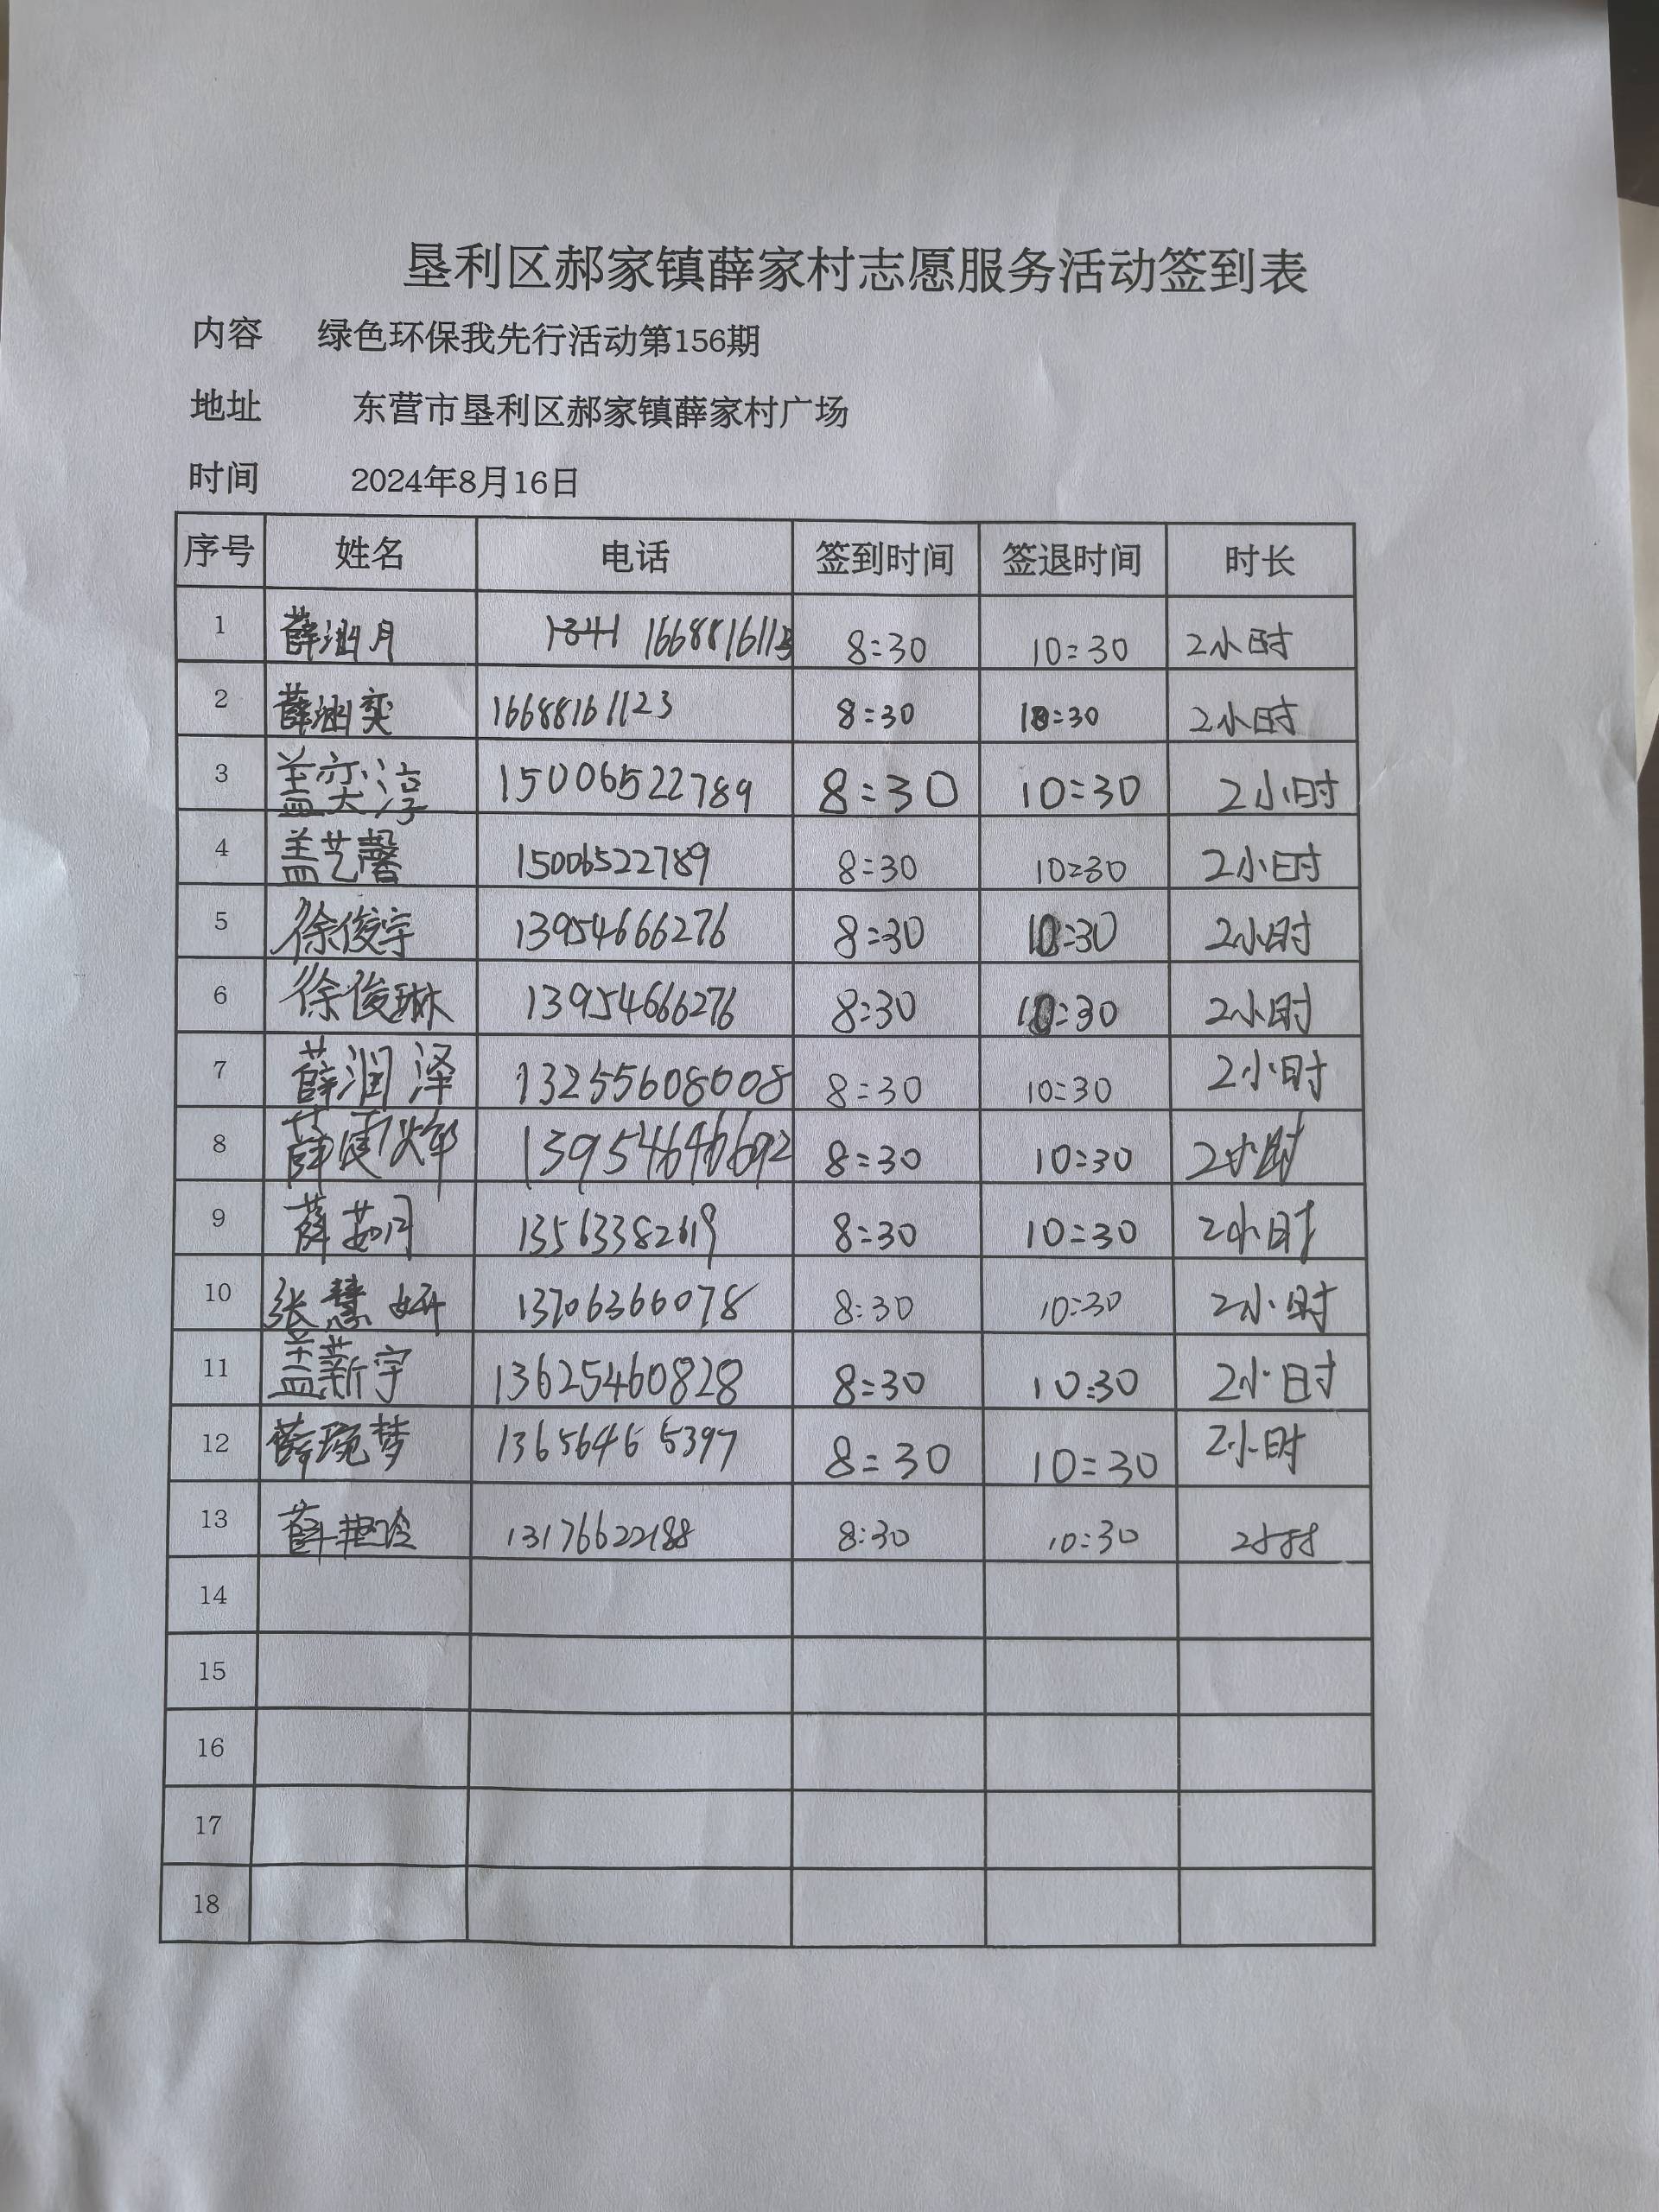 垦利区郝家镇薛家村志愿服务活动签到表
内容 绿色环保我先行活动第156期
地址 东营市垦利区郝家镇薛家村广场
时间 2024年8月16日
序号 姓名 电话 签到时间 签退时间 时长
1 薛涵月 8:30 10:30 2小时
2 薛涵奕 16688161123 8:30 10:30 2小时
3 盖奕淳 15006522789 8:30 10:30 2小时
4 盖艺馨 15006522789 8:30 10:30 2小时
5 徐俊宇 13954666276 8:30 10:30 2小时
6 徐俊琳 13954666276 8:30 10:30 2小时
7 薛润泽 13255608008 8:30 10:30 2小时
8 薛 13954646692 8:30 10:30 2小时
9 薛茹月 8:30 10:30 2小时
10 张慧妍 13706366078 8:30 10:30 2小时
11 盖新宇 13625460828 8:30 10:30 2小时
12 薛琬梦 13656465397 8:30 10:30 2小时
13 薛艳玲 13176622188 8:30 10:30
14
15
16
17
18